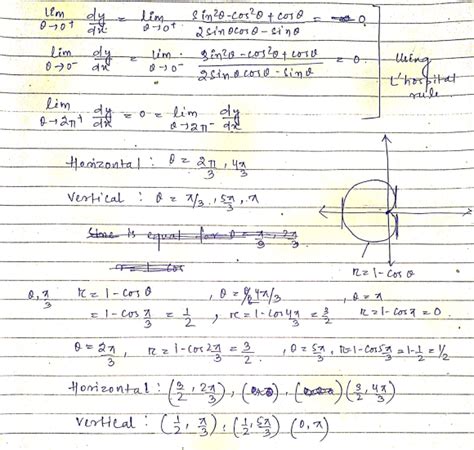 lim θ→0⁺ dy/dx = lim θ→0⁺ (sin²θ-cos²θ+cosθ)/(2sinθcosθ-sinθ) = 0
lim θ→0⁻ dy/dx = lim θ→0⁻ (sin²θ-cos²θ+cosθ)/(2sinθcosθ-sinθ) = 0.
Using L'hospital rule
lim θ→2π⁺ dy/dx = 0 = lim θ→2π⁻ dy/dx
Horizontal : θ = 2π/3, 4π/3
Vertical : θ = π/3, 5π/3, π
Sinc is equal for θ = π/3, 2π/3
r = 1 - cos
r = 1 - cos θ
θ, π/3 r = 1 - cos θ , θ = 4π/3 , θ = π
= 1 - cos π/3 = 1/2 , r = 1 - cos 4π/3 = 3/2 r = 1 - cos π = 0.
θ = 2π/3, r = 1 - cos 2π/3 = 3/2. , θ = 5π/3, r = 1 - cos 5π/3 = 1 - 1/2 = 1/2
Horizontal : (3/2, 2π/3), (3/2, 4π/3)
Vertical : (1/2, π/3), (1/2, 5π/3) (0, π)